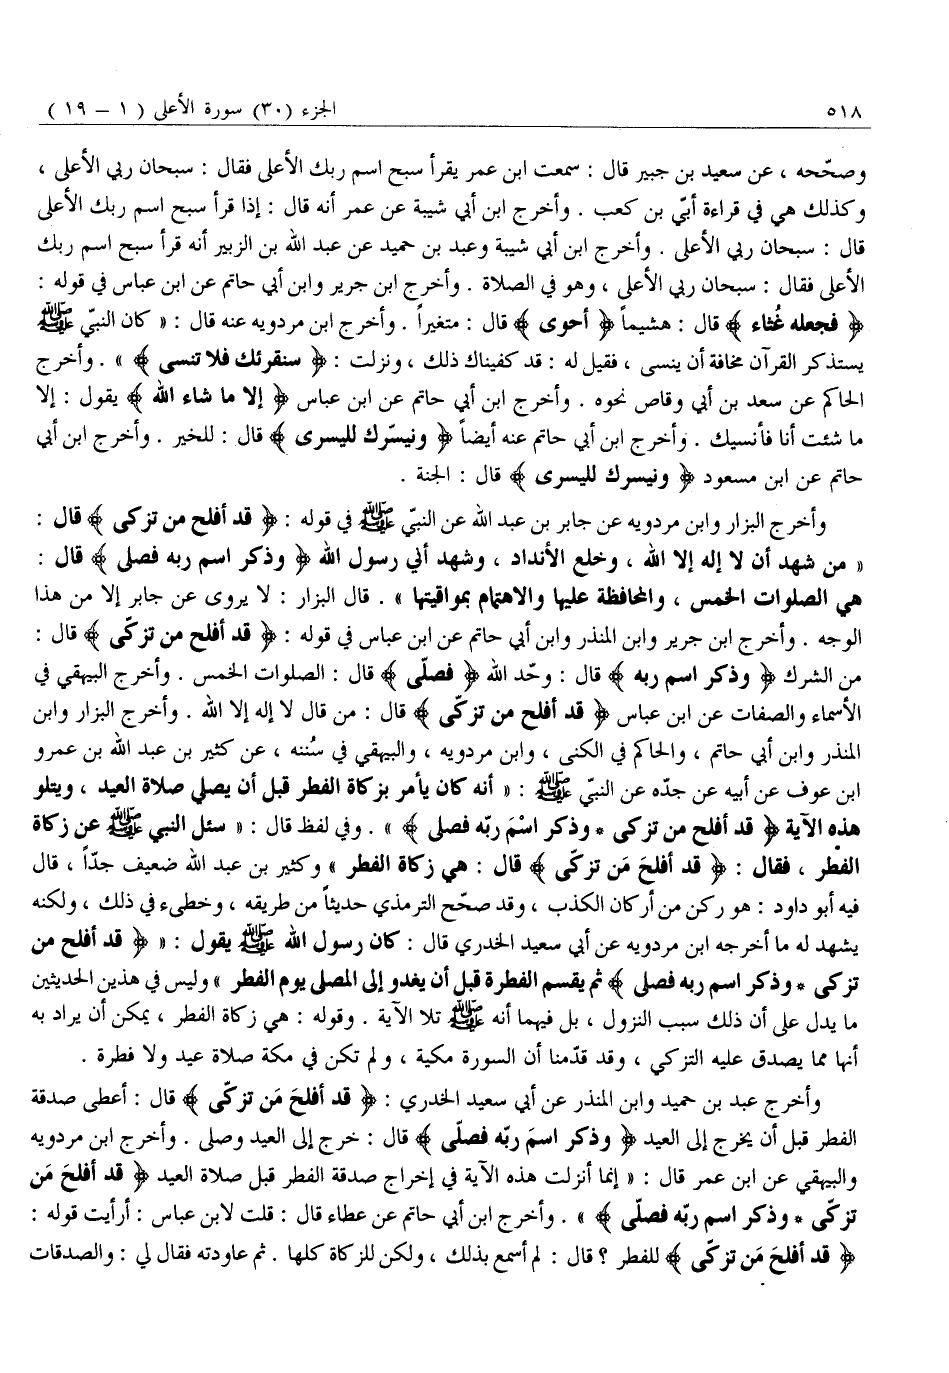 ٥١٨ الجزء (٣٠) سورة الأعلى ( ١ – ١٩ )
وصحّحه ، عن سعيد بن جبير قال : سمعت ابن عمر يقرأ سبح اسم ربك الأعلى فقال : سبحان ربي الأعلى ،
وكذلك هي في قراءة أبيّ بن كعب . وأخرج ابن أبي شيبة عن عمر أنه قال : إذا قرأ سبح اسم ربك الأعلى
قال : سبحان ربي الأعلى . وأخرج ابن أبي شيبة وعبد بن حميد عن عبد الله بن الزبير أنه قرأ سبح اسم ربك
الأعلى فقال : سبحان ربي الأعلى ، وهو في الصلاة . وأخرج ابن جرير وابن أبي حاتم عن ابن عباس في قوله :
﴿ فجعله غُثاء ﴾ قال : هشيماً ﴿ أحوى ﴾ قال : متغيراً . وأخرج ابن مردويه عنه قال : « كان النبيّ ﷺ
يستذكر القرآن مخافة أن ينسى ، فقيل له : قد كفيناك ذلك ، ونزلت : ﴿ سنقرئك فلا تنسى ﴾ » . وأخرج
الحاكم عن سعد بن أبي وقاص نحوه . وأخرج ابن أبي حاتم عن ابن عباس ﴿ إلا ما شاء الله ﴾ يقول : إلا
ما شئت أنا فأنسيك . وأخرج ابن أبي حاتم عنه أيضاً ﴿ ونيسّرك لليسرى ﴾ قال : للخير . وأخرج ابن أبي
حاتم عن ابن مسعود ﴿ ونيسرك لليسرى ﴾ قال : الجنة .
وأخرج البزار وابن مردويه عن جابر بن عبد الله عن النبيّ ﷺ في قوله : ﴿ قد أفلح من تزكى ﴾ قال :
« من شهد أن لا إله إلا الله ، وخلع الأنداد ، وشهد أني رسول الله ﴿ وذكر اسم ربه فصلى ﴾ قال :
هي الصلوات الخمس ، والمحافظة عليها والاهتمام بمواقيتها » . قال البزار : لا يروى عن جابر إلا من هذا
الوجه . وأخرج ابن جرير وابن المنذر وابن أبي حاتم عن ابن عباس في قوله : ﴿ قد أفلح من تزكّى ﴾ قال :
من الشرك ﴿ وذكر اسم ربه ﴾ قال : وحّد الله ﴿ فصلّى ﴾ قال : الصلوات الخمس . وأخرج البيهقي في
الأسماء والصفات عن ابن عباس ﴿ قد أفلح من تزكّى ﴾ قال : من قال لا إله إلا الله . وأخرج البزار وابن
المنذر وابن أبي حاتم ، والحاكم في الكنى ، وابن مردويه ، والبيهقي في سُننه ، عن كثير بن عبد الله بن عمرو
ابن عوف عن أبيه عن جدّه عن النبيّ ﷺ : « أنه كان يأمر بزكاة الفطر قبل أن يصلي صلاة العيد ، ويتلو
هذه الآية ﴿ قد أفلح من تزكى * وذكر اسْمَ ربّه فصلى ﴾ » . وفي لفظ قال : « سئل النبي ﷺ عن زكاة
الفطر ، فقال : ﴿ قد أفلحَ مَن تزكّى ﴾ قال : هي زكاة الفطر » وكثير بن عبد الله ضعيف جدّاً ، قال
فيه أبو داود : هو ركن من أركان الكذب ، وقد صحّح الترمذي حديثاً من طريقه ، وخطىء في ذلك ، ولكنه
يشهد له ما أخرجه ابن مردويه عن أبي سعيد الخدري قال : كان رسول الله ﷺ يقول : « ﴿ قد أفلح من
تزكى * وذكر اسم ربه فصلى ﴾ ثم يقسم الفطرة قبل أن يغدو إلى المصلى يوم الفطر » وليس في هذين الحديثين
ما يدل على أن ذلك سبب النزول ، بل فيهما أنه ﷺ تلا الآية . وقوله : هي زكاة الفطر ، يمكن أن يراد به
أنها مما يصدق عليه التزكي ، وقد قدّمنا أن السورة مكية ، ولم تكن في مكة صلاة عيد ولا فطرة .
وأخرج عبد بن حميد وابن المنذر عن أبي سعيد الخدري : ﴿ قد أفلحَ مَن تزكّى ﴾ قال : أعطى صدقة
الفطر قبل أن يخرج إلى العيد ﴿ وذكر اسمَ ربّه فصلّى ﴾ قال : خرج إلى العيد وصلى . وأخرج ابن مردويه
والبيهقي عن ابن عمر قال : « إنما أنزلت هذه الآية في إخراج صدقة الفطر قبل صلاة العيد ﴿ قد أفلحَ مَن
تزكّى * وذكر اسم ربّه فصلّى ﴾ » . وأخرج ابن أبي حاتم عن عطاء قال : قلت لابن عباس : أرأيت قوله :
﴿ قد أفلحَ مَن تزكّى ﴾ للفطر ؟ قال : لم أسمع بذلك ، ولكن للزكاة كلها . ثم عاودته فقال لي : والصدقات